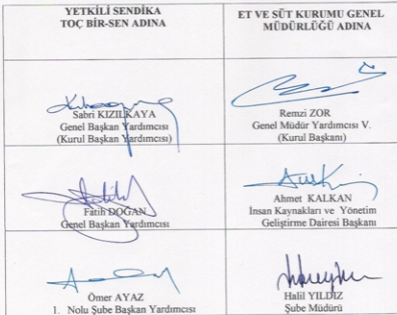 YETKİLİ SENDİKA
TOÇ BİR-SEN ADINA
ET VE SÜT KURUMU GENEL
MÜDÜRLÜĞÜ ADINA
Sabri KIZILKAYA
Genel Başkan Yardımcısı
(Kurul Başkan Yardımcısı)
Remzi ZOR
Genel Müdür Yardımcısı V.
(Kurul Başkanı)
Fatih DOĞAN
Genel Başkan Yardımcısı
Ahmet KALKAN
İnsan Kaynakları ve Yönetim
Geliştirme Dairesi Başkanı
Ömer AYAZ
1. Nolu Şube Başkan Yardımcısı
Halil YILDIZ
Şube Müdürü